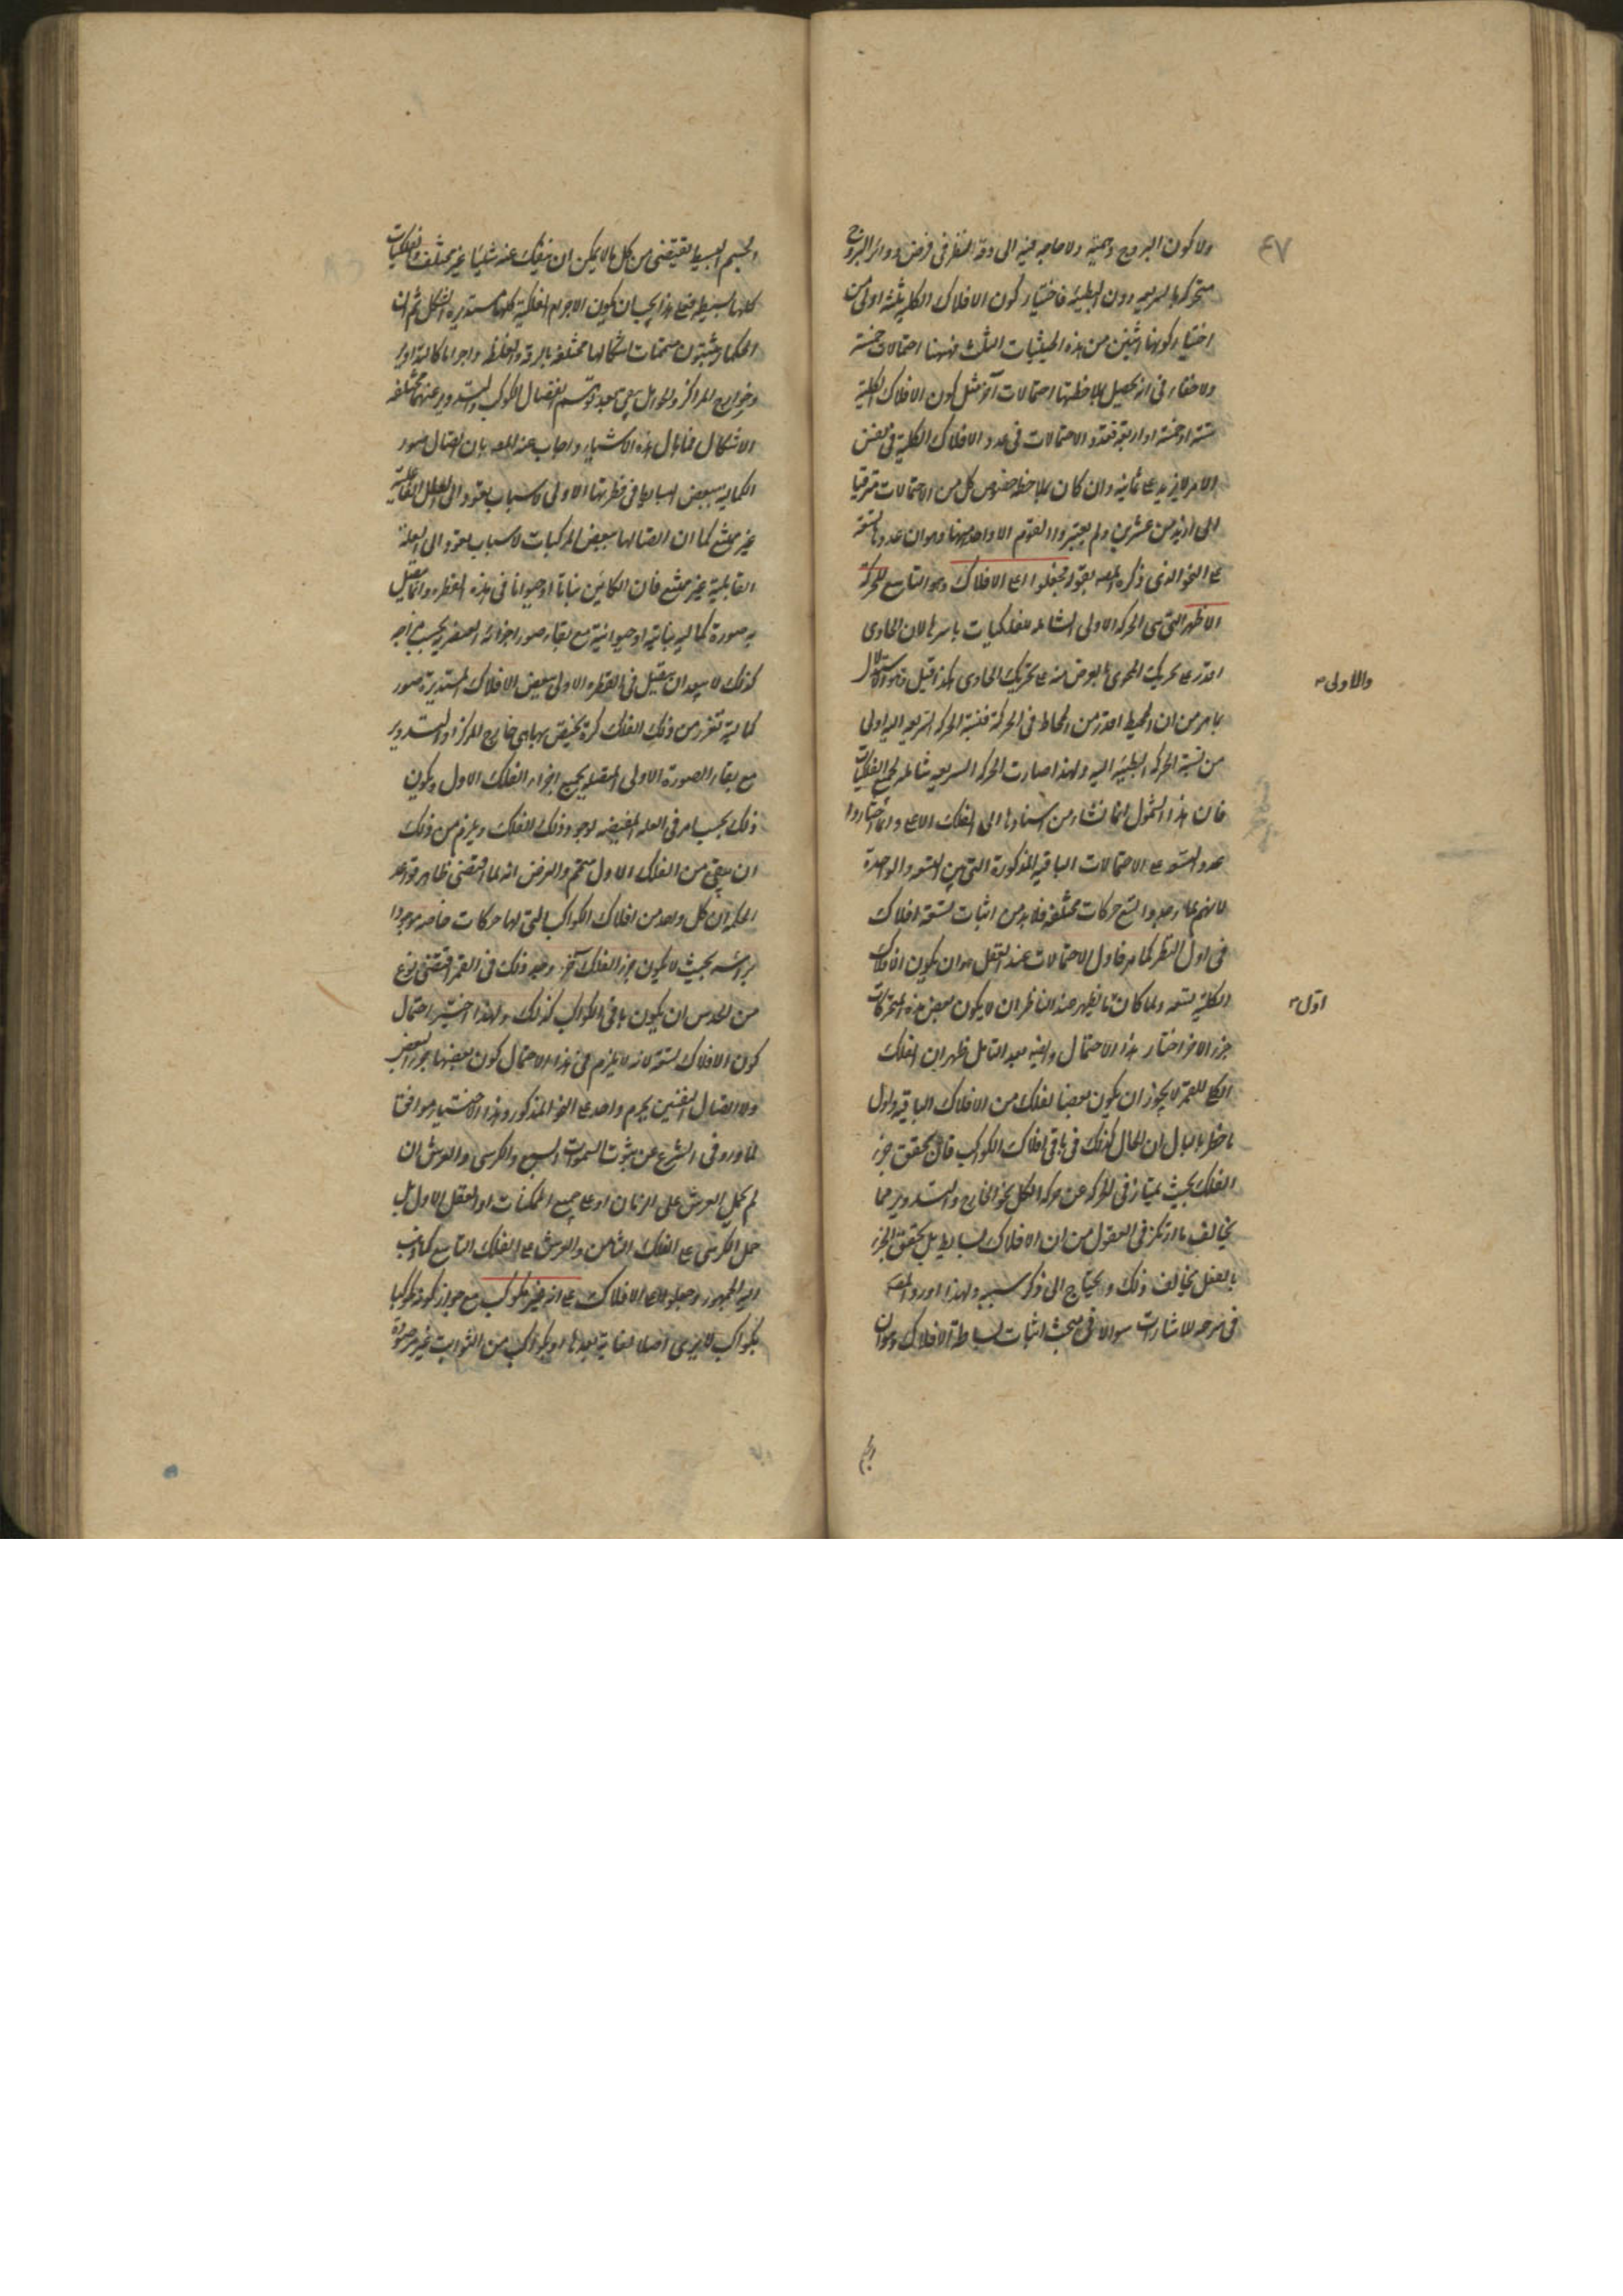 ٤٧
ولا كون البروج وهمية ولا حاجة فيه الى دقة النظر فى فرض دوائر البروج
متحركة بالسريعة دون البطيئة فاختيار كون الافلاك الكلية ثلثة اولى من
اختيار كونها اثنين من هذه الحيثيات الثلث فههنا احتمالات خمسة
ولا خفاء فى انه يحصل بملاحظتها احتمالات آخر مثل كون الافلاك الكلية
ستة او خمسة او اربعة فتعدد الاحتمالات فى عدد الافلاك الكلية فى نفس
الامر لا يزيد على ثمانية وان كان بملاحظة خصوص كل من الاحتمالات مترقيا
الى ازيد من عشرين ولم يعتبروا القوم الا واحد منها وهو ان عددها تسعة
على النحو الذى ذكره المصه بقوله فجعلوا اعلى الافلاك وهو التاسع للحركة
الاظهر التى هى الحركة الاولى الشاملة للفلكيات باسرها لان الحاوى
اقدر على تحريك المحوى بالعرض منه على تحريك الحاوى هكذا قيل والاولى الاستدلال
بما مر من ان المحيط اقدر من المحاط فى الحركة فنسبة الحركة السريعة اليه اولى
من نسبة الحركة البطيئة اليه ولهذا صارت الحركة السريعة شاملة لجميع الفلكيات
فان هذا الشمول انما نشاء من اسنادها الى الفلك الاعلى وانما اختاروا
عدد التسعة على الاحتمالات الباقية المذكورة التى بين التسعة والواحدة
لانهم لما وجدوا تسع حركات مختلفة فلا بد من اثبات تسعة افلاك
فى اول النظر كما مر فاول الاحتمالات عند العقل هو ان يكون الافلاك
الكلية تسعة ولما كان ما يظهر عند الناظر ان لا يكون بعض هذه المتحركات
جزء الاخر اختار هذا الاحتمال وايضا بعد التامل ظهر ان الفلك
الكلى للقمر لا يجوز ان يكون بعضا لفلك من الافلاك الباقية واول
ما خطر بالبال ان الحال كذلك فى باقى افلاك الكواكب فان تحقق جزء
الفلك بحيث يمتاز فى الحركة عن حركة الكل نحو الخارج والتدوير مما
يخالف ما ارتكز فى العقول من ان الافلاك بسائط بل تحقق الجزء
بالفعل يخالف ذلك ويحتاج الى ذكر سببه ولهذا اورد المصه
فى شرحه للاشارات سوالا فى مبحث اثبات بساطة الافلاك وهو ان
والاولى
اول
الجسم البسيط يقتضى من كل ما لا يمكن ان ينفك عنه شيئا غير مختلف والفلكيات
كلها بسيطة فعلى هذا يجب ان يكون الاجرام الفلكية كلها مستديرة الشكل ثم ان
الحكماء يثبتون متممات اشكالها مختلفة بالرقة والغلظ واجراما كالتداوير
وخوارج المراكز والحوامل
الاشكال فما بال هذه الاشياء واجاب عنه المصه بان اتصال صور
الكمالية ببعض البسائط فى فطرتها الاولى لاسباب يعود الى العلل الفاعلية
غير ممتنع كما ان اتصالها ببعض المركبات لاسباب يعود الى العلة
القابلية غير ممتنع فان الكائن نباتا او حيوانا فى هذه الفطرة وان اتصل
به صورة كمالية نباتية او حيوانية مع بقاء صور اجزائه العنصرية بحسب مزاجه
كذلك لا يبعد ان يتصل فى الفطرة الاولى ببعض الافلاك المستديرة صور
كمالية تفرز من ذلك الفلك كرة تختص بها هى خارج المركز او التدوير
مع بقاء الصورة الاولى المتصلة بجميع اجزاء الفلك الاول ويكون
ذلك بحسب امر فى العلة المفيضة لوجود ذلك الفلك ويلزم من ذلك
ان يبقى من الفلك الاول متمم والغرض انه لما اقتضى ظاهر قواعد
الحكمة ان كل واحد من افلاك الكواكب التى لها حركات خاصة موجودا
براسه بحيث لا يكون جزء الفلك آخر وجد ذلك فى القمر اقتضى نوع
من الحدس ان يكون باقى الكواكب كذلك ولهذا اختير احتمال
كون الافلاك تسعة لانه لا يلزم فى هذا الاحتمال كون بعضها جزء البعض
ولا اتصال النفسين بجرم واحد على النحو المذكور وهذا الاختيار موافقا
لما ورد فى الشرع من ثبوت السموات السبع والكرسى والعرش ان
لم يحمل العرش على الزمان او على جميع الممكنات او العقل الاول بل
حمل الكرسى على الفلك الثامن والعرش على الفلك التاسع كما ذهب
اليه الجمهور وجعلوا اعلى الافلاك على انه غير مكوكب مع جواز كونه مكوكبا
بكواكب لا يرى اصلا لغاية بعدها او بكوكب من الثوابت غير مرصودة